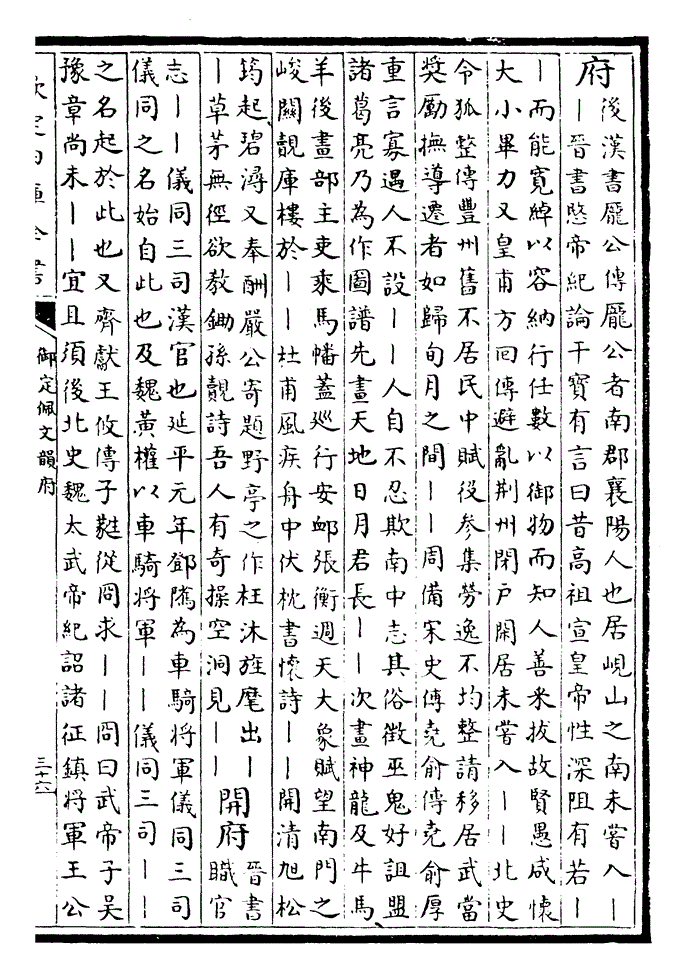 府
後漢書龎公傳龎公者南郡襄陽人也居峴山之南未嘗入丨
丨晉書愍帝紀論干寶有言曰昔高祖宣皇帝性深阻有若丨
丨而能寛綽以容納行任數以御物而知人善采拔故賢愚咸懷
大小畢力又皇甫方回傳避亂荆州閉户閑居未嘗入丨丨北史
令狐整傳豐州舊不居民中賦役参集勞逸不均整請移居武當
奨勵撫導遷者如歸旬月之間丨丨周備宋史傅堯俞傳堯俞厚
重言寡遇人不設丨丨人自不忍欺南中志其俗徴巫鬼好詛盟
諸葛亮乃為作圖譜先畫天地日月君長丨丨次畫神龍及牛馬
羊後畫部主吏乘馬幡蓋巡行安䘏張衡週天大象賦望南門之
峻闕覩庫樓於丨丨杜甫風疾舟中伏枕書懷詩丨丨開清旭松
筠起碧潯又奉酬嚴公寄題野亭之作枉沐旌麾出丨
丨草茅無徑欲教鋤孫覿詩吾人有奇操空洞見丨丨
開府
晉書
職官
志丨丨儀同三司漢官也延平元年鄧隲為車騎將軍儀同三司
儀同之名始自此也及魏黄權以車騎將軍丨丨儀同三司丨丨
之名起於此也又齊獻王攸傳子蕤從冏求丨丨冏曰武帝子吳
豫章尚未丨丨宜且須後北史魏太武帝紀詔諸征鎮將軍王公
欽定四庫全書
御定佩文韻府
三十六